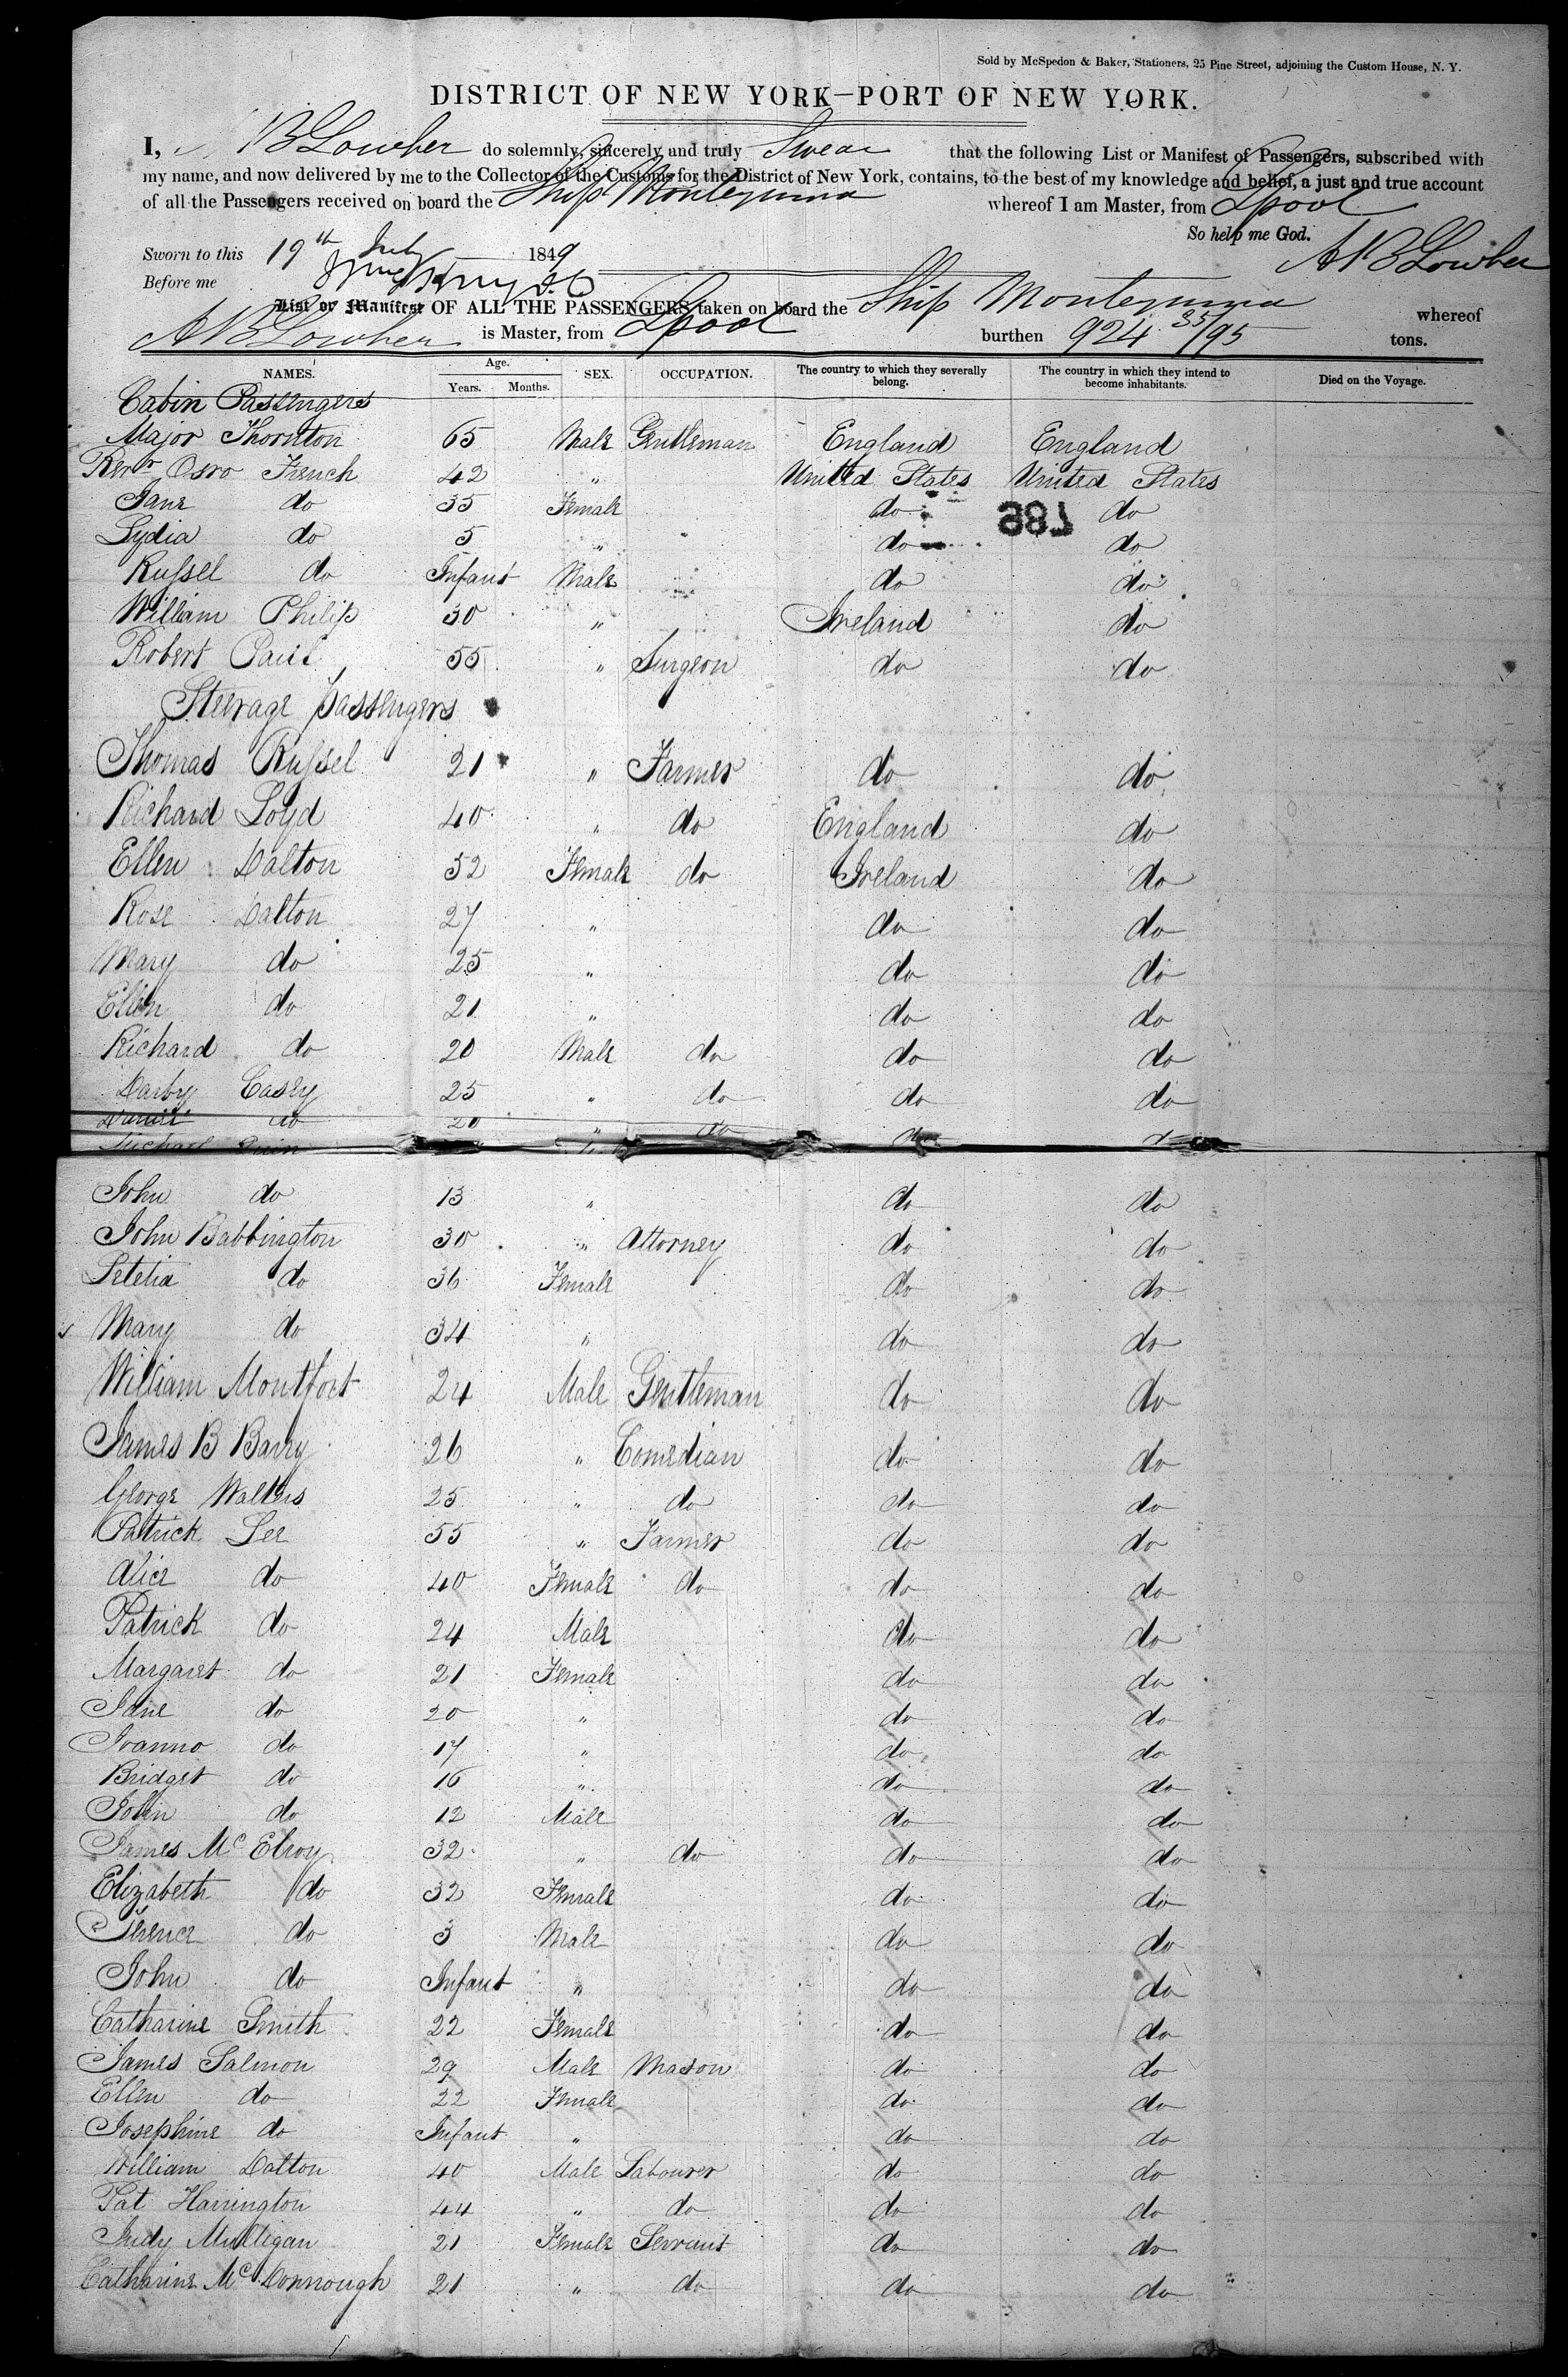 Sold by McSpedon & Baker, Stationers, 25 Pine Street, adjoining the Custom House, N. Y.
DISTRICT OF NEW YORK—PORT OF NEW YORK.
I, A B Lowber do solemnly, sincerely and truly Swear that the following List or Manifest of Passengers, subscribed with
my name, and now delivered by me to the Collector of the Customs for the District of New York, contains, to the best of my knowledge and belief, a just and true account
of all the Passengers received on board the Ship Montezuma whereof I am Master, from Lpool
So help me God.
Sworn to this 19th July 1849 A B Lowber
Before me
List or Manifest OF ALL THE PASSENGERS taken on board the Ship Montezuma whereof
A B Lowber is Master, from Lpool burthen 924 35/95 tons.
NAMES. Age. Years. Months. SEX. OCCUPATION. The country to which they severally belong. The country in which they intend to become inhabitants. Died on the Voyage.
Cabin Passengers
Major Thornton 65 Male Gentleman England England
Revr Osro French 42 " United States United States
Jane do 35 Female do do
987
Lydia do 5 " do do
Russel do Infant Male do do
William Philip 30 " Ireland do
Robert Paul 55 " Surgeon do do
Steerage passengers
Thomas Russel 21 " Farmer do do
Richard Loyd 40 " do England do
Ellen Dalton 52 Female do Ireland do
Rose Dalton 27 " do do
Mary do 25 " do do
Ellen do 21 " do do
Richard do 20 Male do do do
Darby Casey 25 " do do do
do 20 " do do
Michael Quin
John do 13 " do do
John Babbington 30 " Attorney do do
Letetia do 36 Female do do
Mary do 34 " do do
William Montfort 24 Male Gentleman do do
James B Barry 26 " Comedian do do
George Walters 25 " do do do
Patrick Lee 55 " Farmer do do
Alice do 40 Female do do do
Patrick do 24 Male do do
Margaret do 21 Female do do
Jane do 20 " do do
Joanno do 17 " do do
Bridget do 16 " do do
John do 12 Male do do
James Mc Elroy 32 " do do do
Elizabeth do 32 Female do do
Terence do 3 Male do do
John do Infant " do do
Catharine Smith 22 Female do do
James Salmon 29 Male Mason do do
Ellen do 22 Female do do
Josephine do Infant " do do
William Dalton 40 Male Labourer do do
Pat Harrington 44 " do do do
Judy Mulligan 21 Female Servant do do
Catharine Mc Donnough 21 " do do do